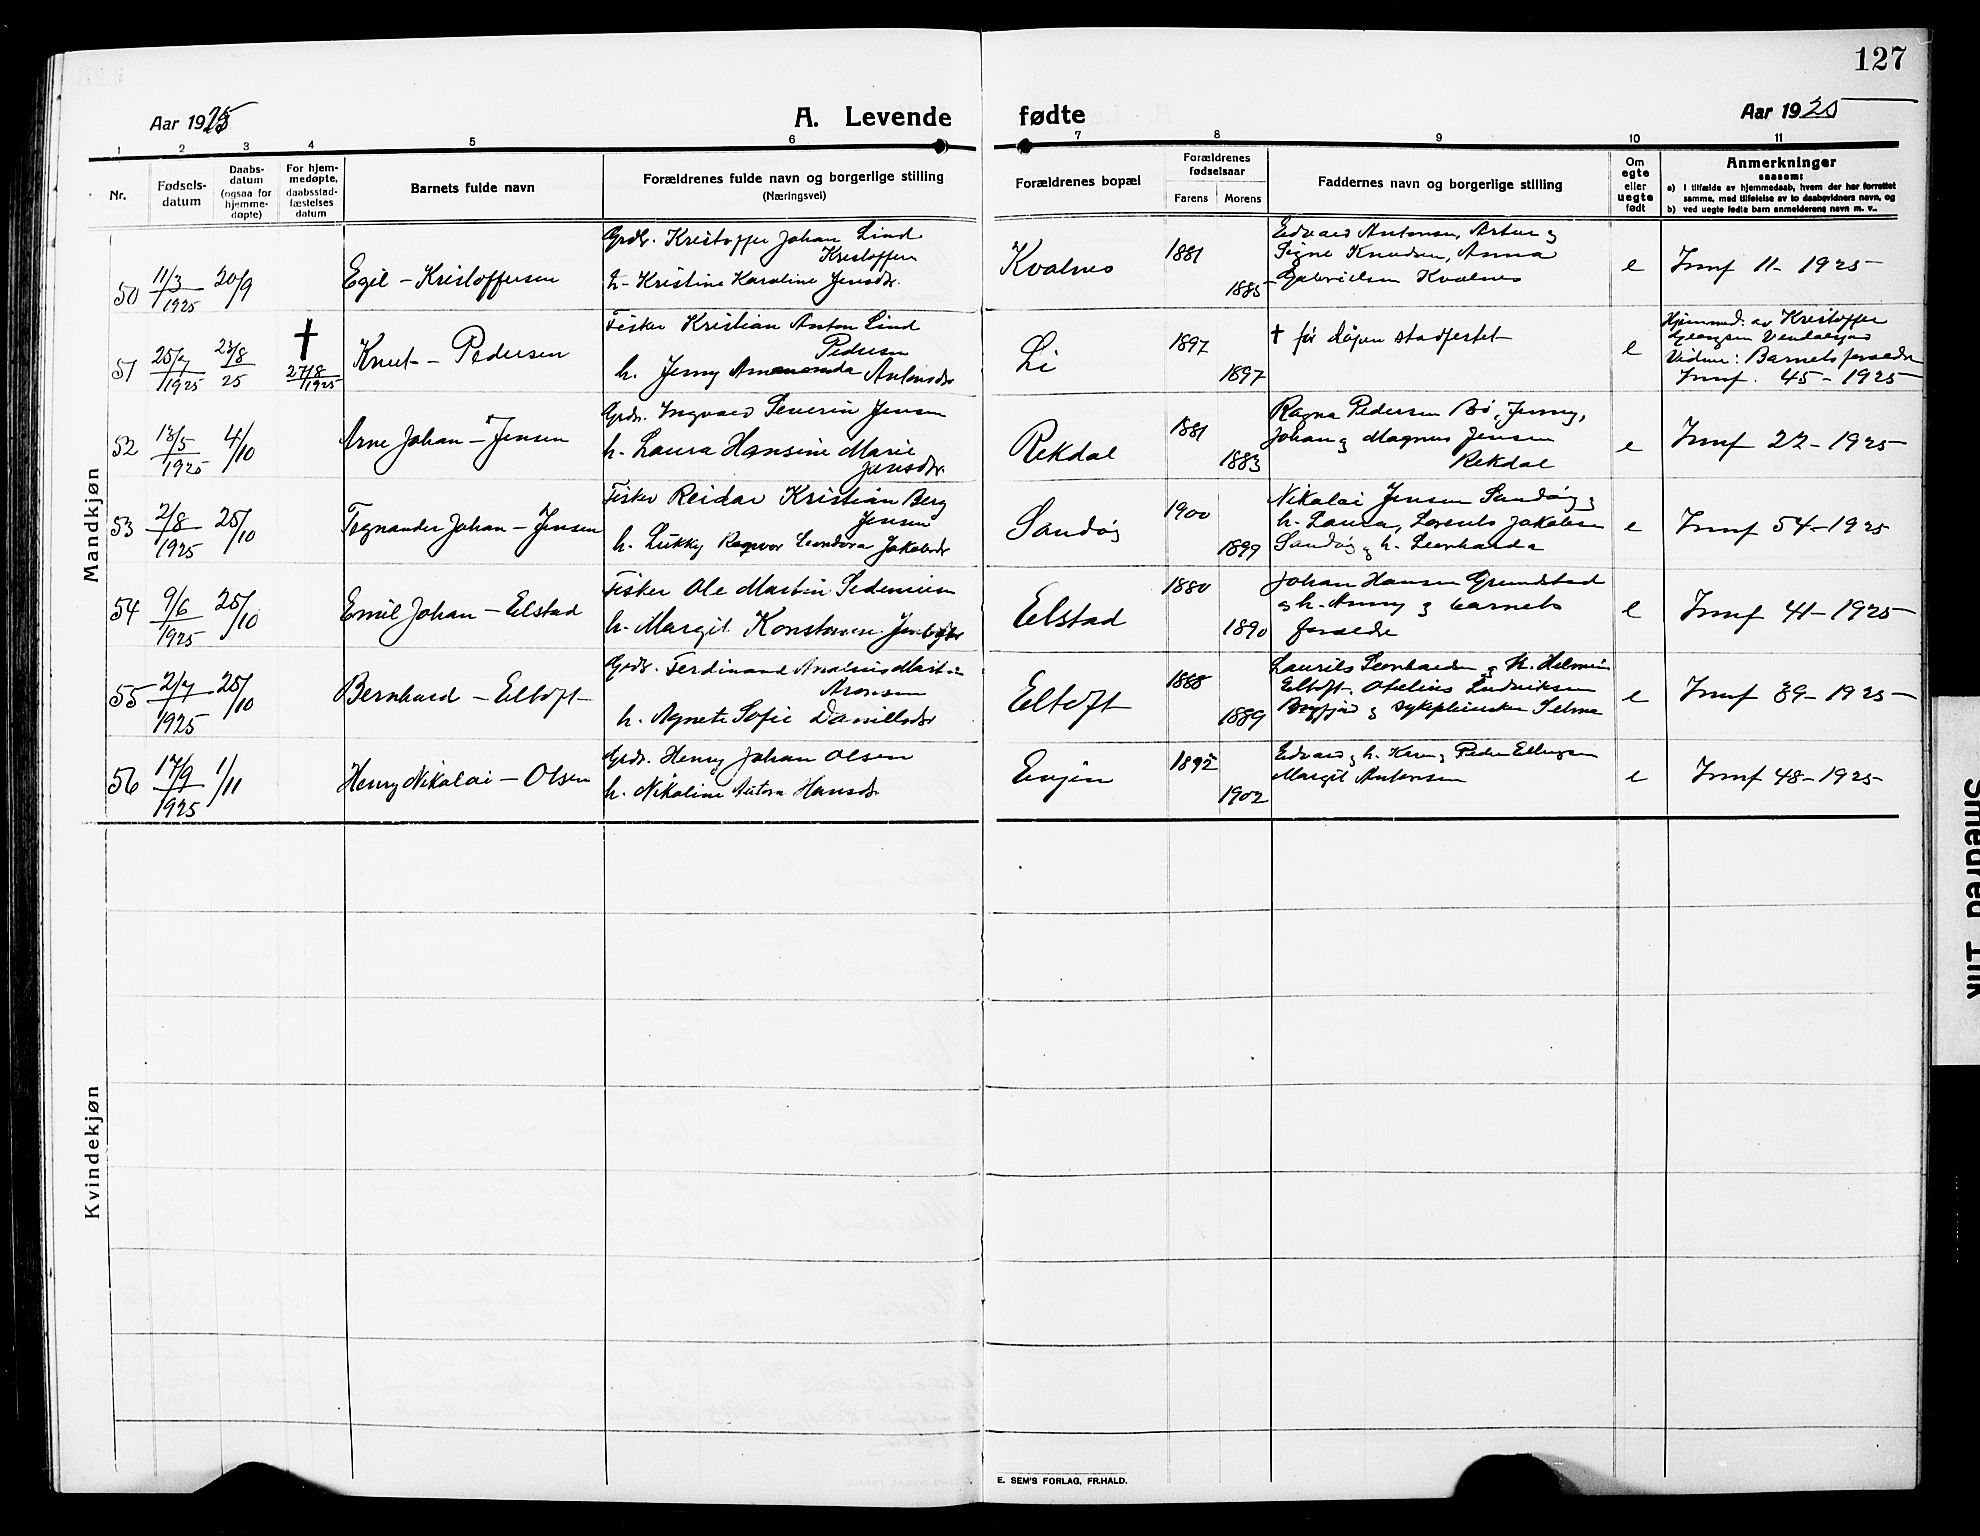 127
Aar 1925
A. Levende
fødte
Aar 1925
1 2 3 4 5 6 7 8 9 10 11
Nr.
Fødsels-
datum
Daabs-
datum
(ogsaa for
hjemme-
døpte)
For hjem-
medøpte,
daabsstad-
fæstelses
datum
Barnets fulde navn
Forældrenes fulde navn og borgerlige stilling
(Næringsvei)
Forældrenes bopæl
Forældrenes
fødselsaar
Farens Morens
Faddernes navn og borgerlige stilling
Om
egte
eller
uegte
født
Anmerkninger
saasom:
a) I tilfælde av hjemmedaab, hvem der har forrettet
samme, med tilføielse av to daabsvidners navn, og
b) ved uegte fødte barn anmelderens navn m. v..
Mandkjøn
50
11/3
1925
20/9
Egil - Kristoffersen
Grdr. Kristoffer Johan Lind
Kristoffersen
h. Kristine Karoline Jensdr.
Kvalnes
1881
1885
Edvard Antonsen, Artur og
Signe Knudsen, Anna
Gabrielsen Kvalnes
e
Innf 11 - 1925
51
25/7
1925
23/8
25
†
27/8
1925
Knut - Pedersen
Fisker Kristian Anton Lind
Pedersen
h. Jenny Amanda Antonsdr
Li
1897
1897
† før dåpen stadfestet
e
Hjemmed. av Kristoffer
Vidner: Barnets foreldre
Innf. 45 - 1925
52
13/5
1925
4/10
Arne Johan - Jensen
Grdr. Ingvard Severin Jensen
h. Laura Hansine Marie
Jensdr.
Rekdal
1881
1883
Ragna Pedersen Bø, Jenny,
Johan og Magnus Jensen
Rekdal
e
Innf 22 - 1925
53
2/8
1925
25/10
Tognander Johan - Jensen
Fisker Reidar Kristian Berg
Jensen
h. Lukky Ragnvor Leondora Jakobsdr
Sandøy
1900
1899
Nikolai Jensen Sandøy og
h. Laura, Lorents Jakobsen
Sandøy og h. Leonharda
e
Innf 54 - 1925
54
9/6
1925
25/10
Emil Johan - Elstad
Fisker Ole Martin Pedersen
h. Margit Konstanse
Elstad
1880
1890
Johan Hansen Grundstad
og h. Anny og barnets
foreldre
e
Innf 41 - 1925
55
2/7
1925
25/10
Bernhard - Eltoft
Grdr. Ferdinand Martin
Aronsen
h. Agnete Sofie Danielsdr
Eltoft
1888
1889
Laurits Leonhardsen og h. Helmine
Eltoft. Otelius Ludviksen
og sykepleierske Selma
e
Innf 39 - 1925
56
17/9
1925
1/11
Henry Nikolai - Olsen
Grdr. Henry Johan Olsen
h. Nikoline Autora Hansdr
Engen
1892
1902
Edvard og h. Karen, Peder Ellingsen
Margit Antonsen
e
Innf 48 - 1925
Kvindekjøn
E. SEM'S FORLAG, FR.HALD.